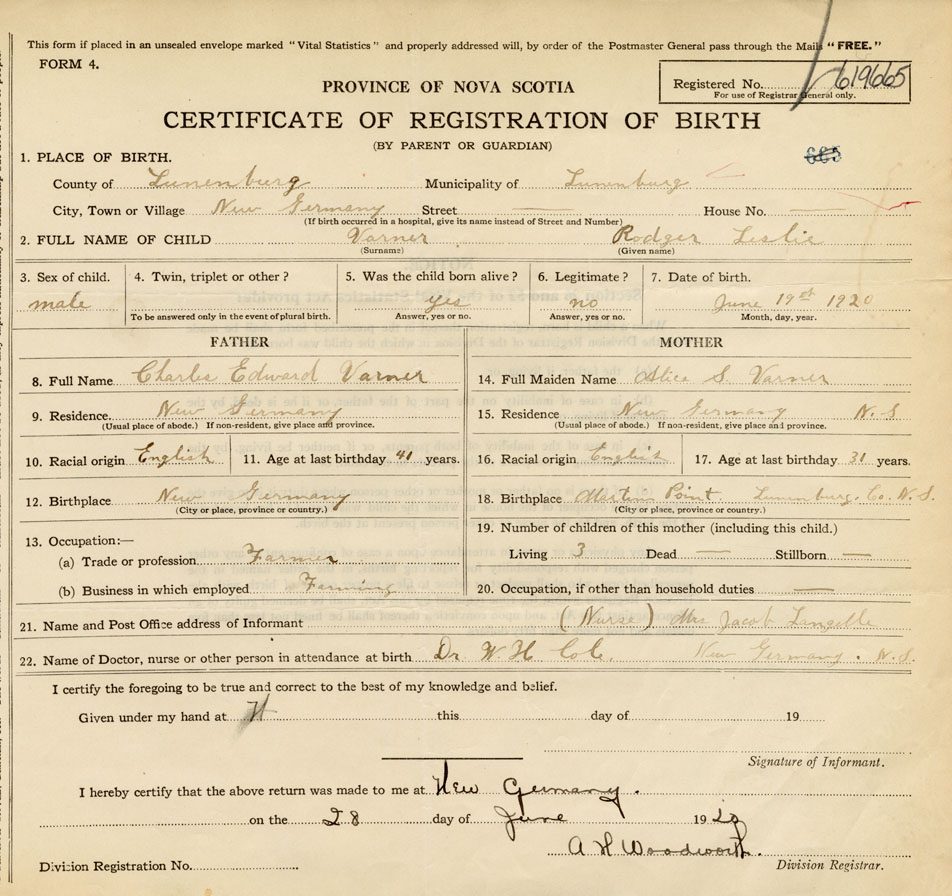 This form if placed in an unsealed envelope marked "Vital Statistics" and properly addressed will, by order of the Postmaster General pass through the Mails "FREE."
FORM 4.
Registered No. 619665
For use of Registrar General only.
PROVINCE OF NOVA SCOTIA
CERTIFICATE OF REGISTRATION OF BIRTH
(BY PARENT OR GUARDIAN)
665
1. PLACE OF BIRTH.
County of Lunenburg Municipality of Lunenburg
City, Town or Village New Germany Street — House No. —
(If birth occurred in a hospital, give its name instead of Street and Number)
2. FULL NAME OF CHILD Varner Rodger Leslie
(Surname) (Given name)
3. Sex of child. 4. Twin, triplet or other? 5. Was the child born alive? 6. Legitimate? 7. Date of birth.
male yes no June 19st 1920
To be answered only in the event of plural birth. Answer, yes or no. Answer, yes or no. Month, day, year.
FATHER MOTHER
8. Full Name Charles Edward Varner 14. Full Maiden Name Alice S. Varner
9. Residence. New Germany 15. Residence New Germany N.S
(Usual place of abode.) If non-resident, give place and province. (Usual place of abode.) If non-resident, give place and province.
10. Racial origin English 11. Age at last birthday 41 years. 16. Racial origin English 17. Age at last birthday 31 years.
12. Birthplace New Germany 18. Birthplace Martin Point Lunenburg. Co. N.S.
(City or place, province or country.) (City or place, province or country.)
13. Occupation:— 19. Number of children of this mother (including this child.)
(a) Trade or profession Farmer Living 3 Dead — Stillborn —
(b) Business in which employed Farming 20. Occupation, if other than household duties —
21. Name and Post Office address of Informant (Nurse) Mrs Jacob Langille
22. Name of Doctor, nurse or other person in attendance at birth Dr. W. H Cole. New Germany. N.S.
I certify the foregoing to be true and correct to the best of my knowledge and belief.
Given under my hand at this day of 19
Signature of Informant.
I hereby certify that the above return was made to me at New Germany.
on the 28 day of June 1920
A H Woodworth.
Division Registration No. Division Registrar.